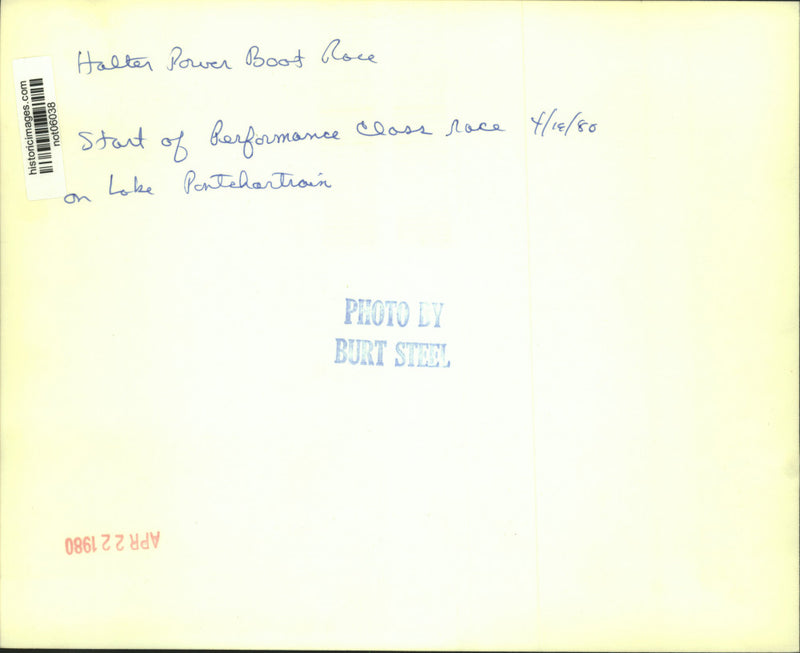 Halter Power Boat Race
historicimages.com
not06038
Start of Performance Class Race
on Lake Pontchartrain
PHOTO BY
BURT STEEL
APR 22 1980